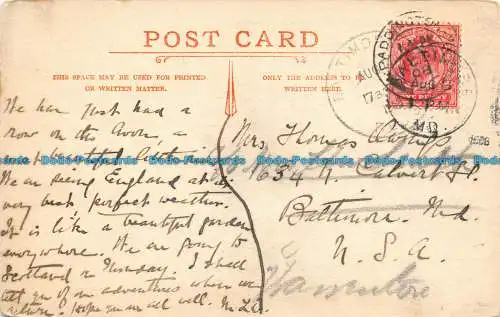 POST CARD
THIS SPACE MAY BE USED FOR PRINTED
OR WRITTEN MATTER.
ONLY THE ADDRESS TO BE
WRITTEN HERE.
We have just had a
row on the Avon, a
beautiful
We are seeing England at its
very best perfect weather.
It is like a beautiful garden
everywhere. We are going to
Scotland on Tuesday. I shall
tell you of our adventures when we
return. Hope you are all well.
Mrs. Thomas
1634 N. Calvert St.
Baltimore. Md.
U. S. A.
PADDINGTON
AUG
MD
Bodo-Postcards